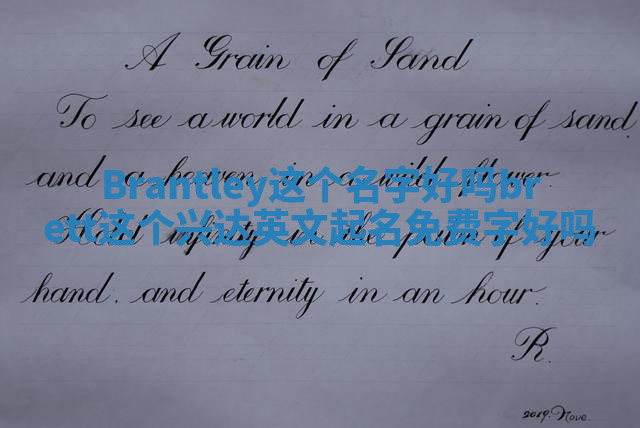 A Grain of Sand
To see a world in a grain of sand,
and a heaven in a wild flower.
Brantley这个名字好吗br
ett这个兴达英文起名免费字好吗
Hold infinity in the palm of your
hand. and eternity in an hour.
R.
2019. Nove.